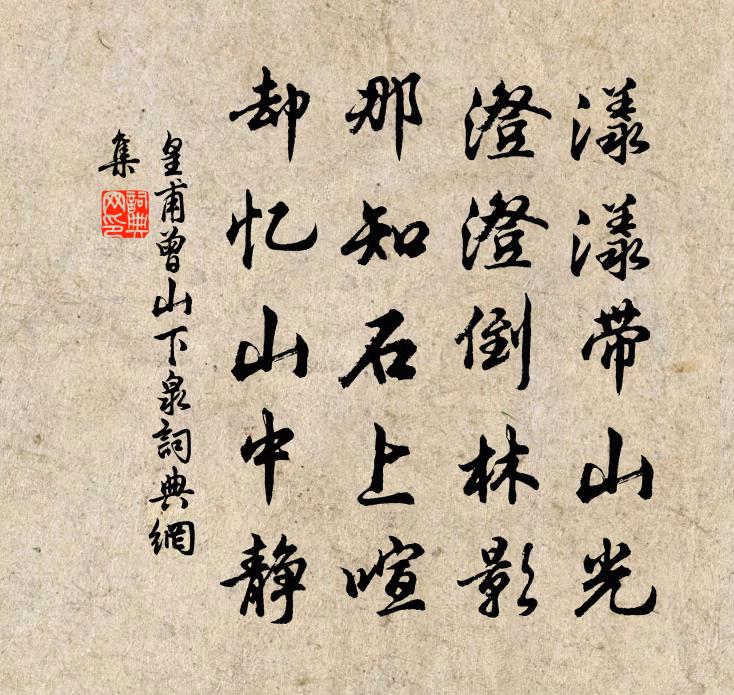 漾漾带山光
澄澄倒林影
那知石上喧
却忆山中静
皇甫曾山下泉詞典網
集
詞典
网印